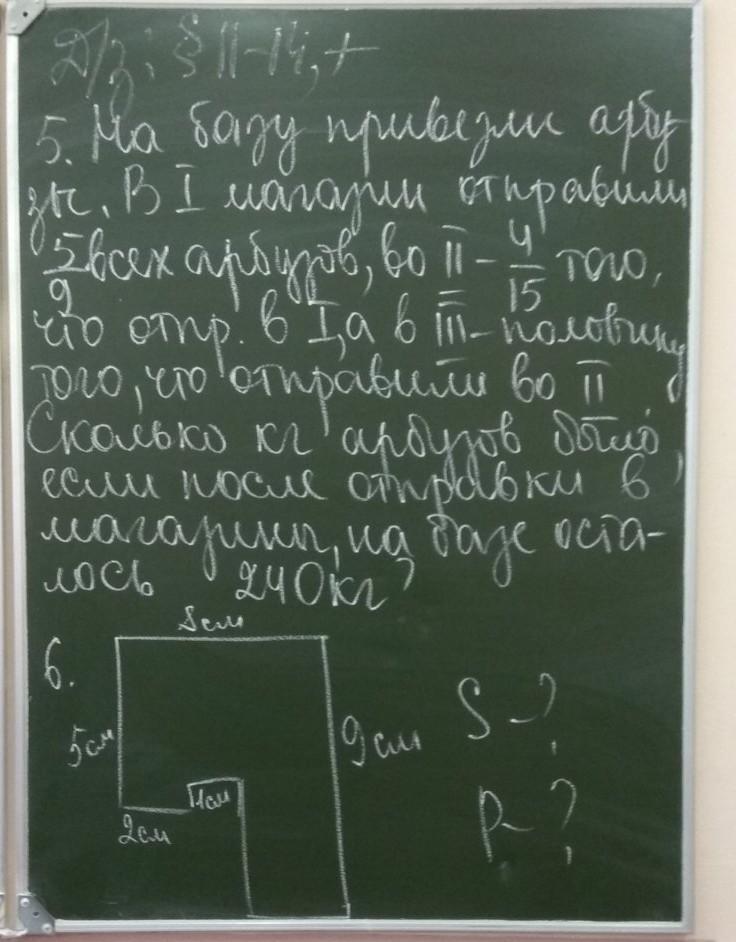 Д/з: § 11-14, +
5. На базу привезли арбу-
зы. В I магазин отправили
5/9 всех арбузов, во II - 4/15 того,
что отпр. в I, а в III - половину
того, что отправили во II.
Сколько кг арбузов было,
если после отправки в
магазины, на базе оста-
лось 240кг?
6.
8см
5см
9см
1см
2см
S - ?
P - ?